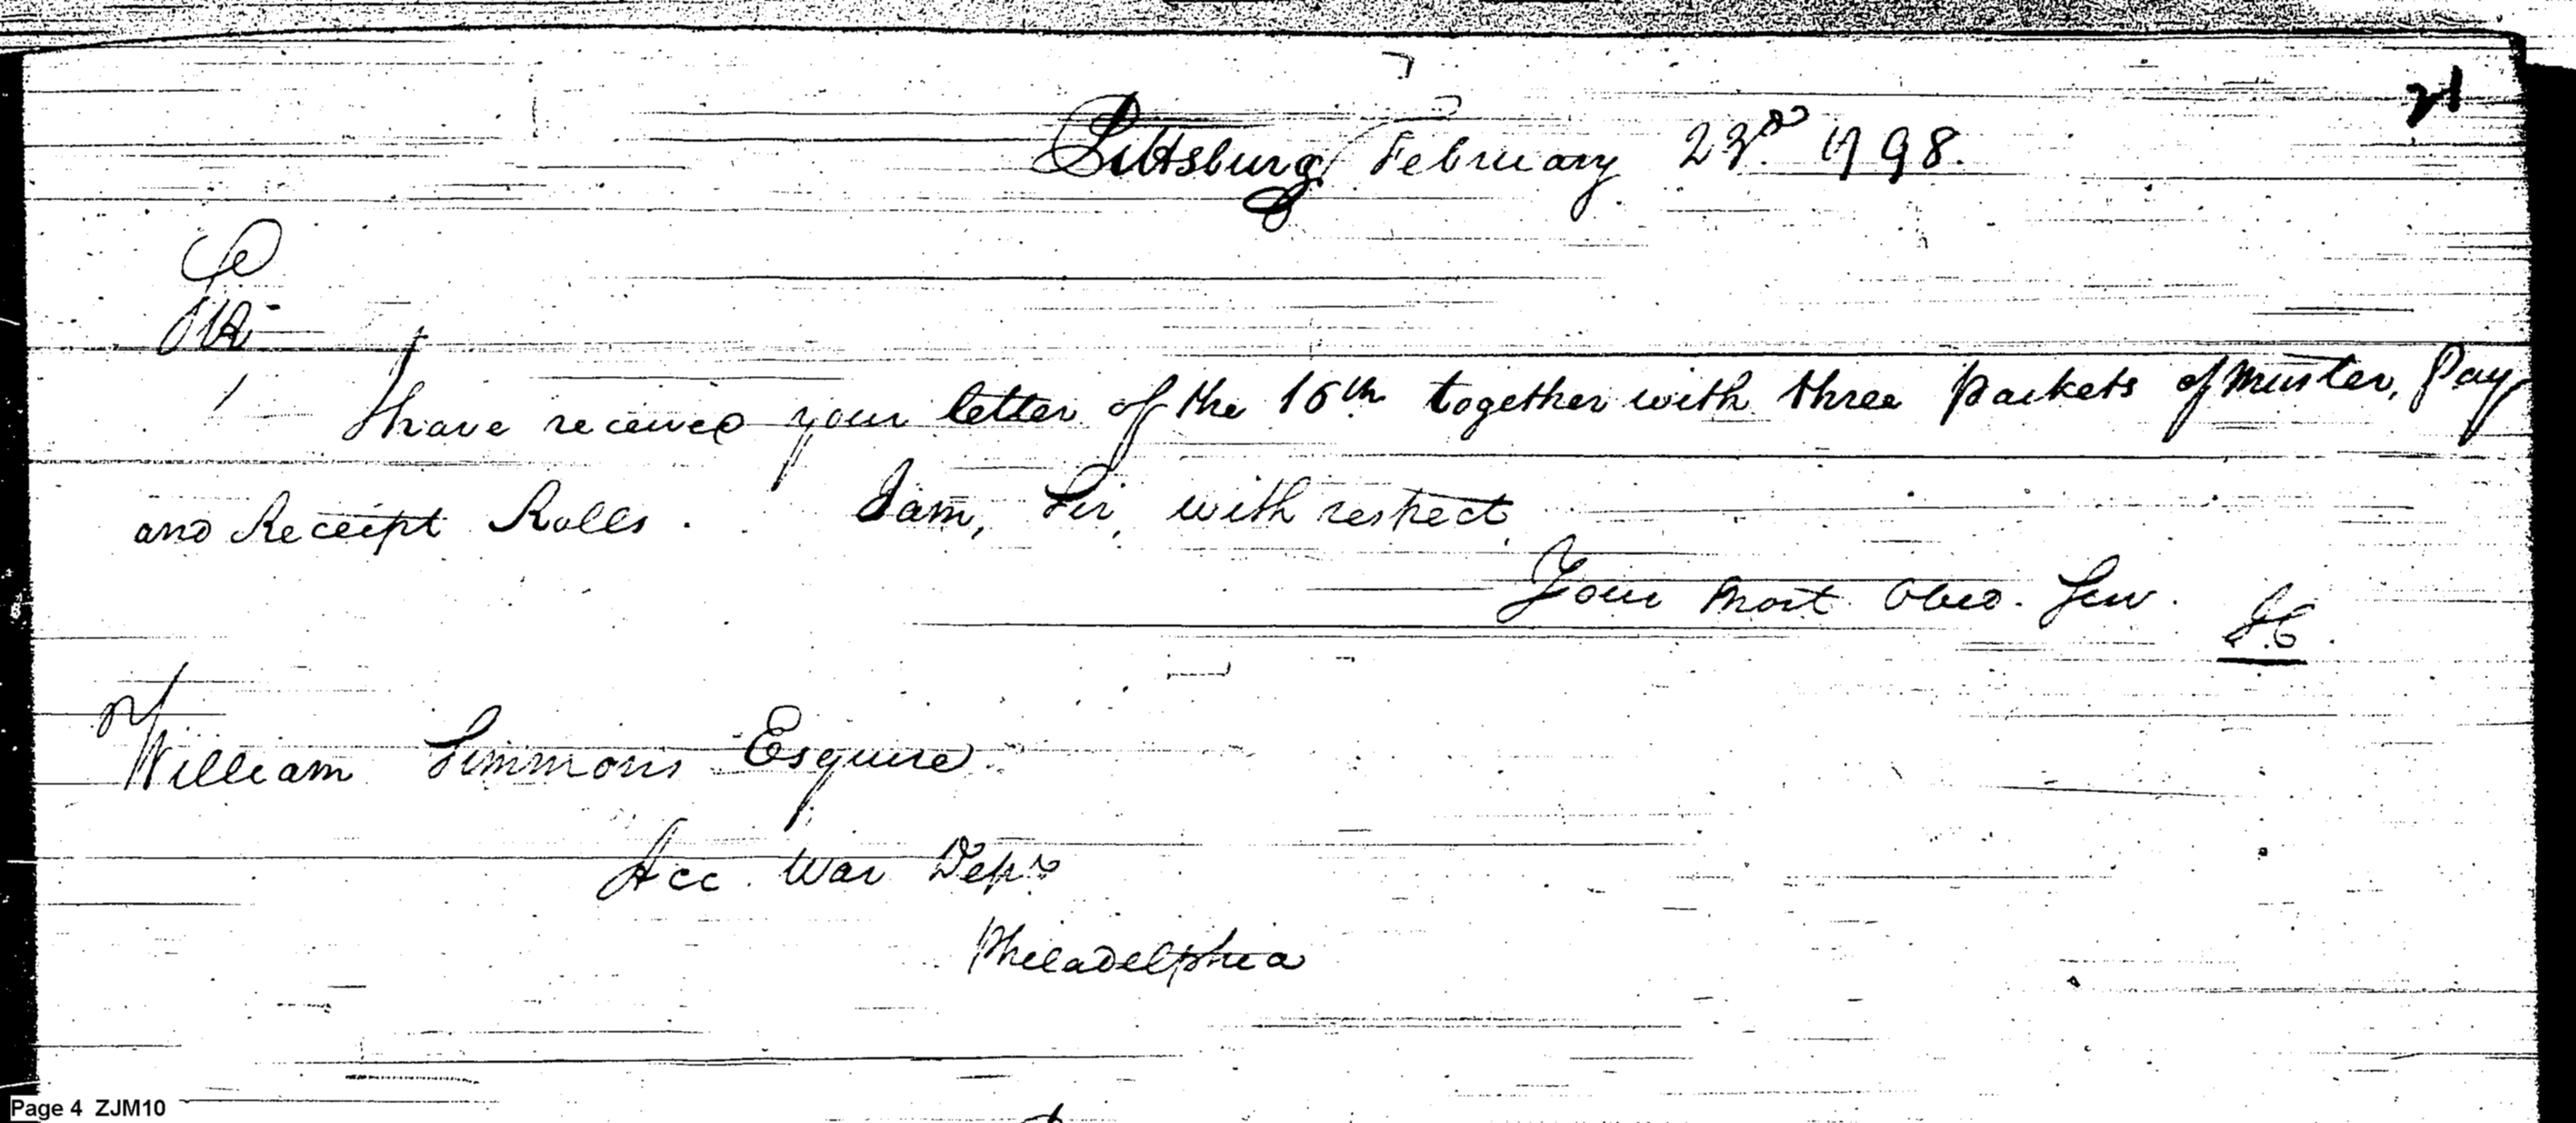 21
Pittsburg February 23d. 1798.
Sir
I have received your letter of the 16th together with three packets of Muster, Pay
and Receipt Rolls. I am, Sir, with respect,
Your Most Obed. Serv.
William Simmons Esquire
Acc. War Dept
Philadelphia
Page 4 ZJM10